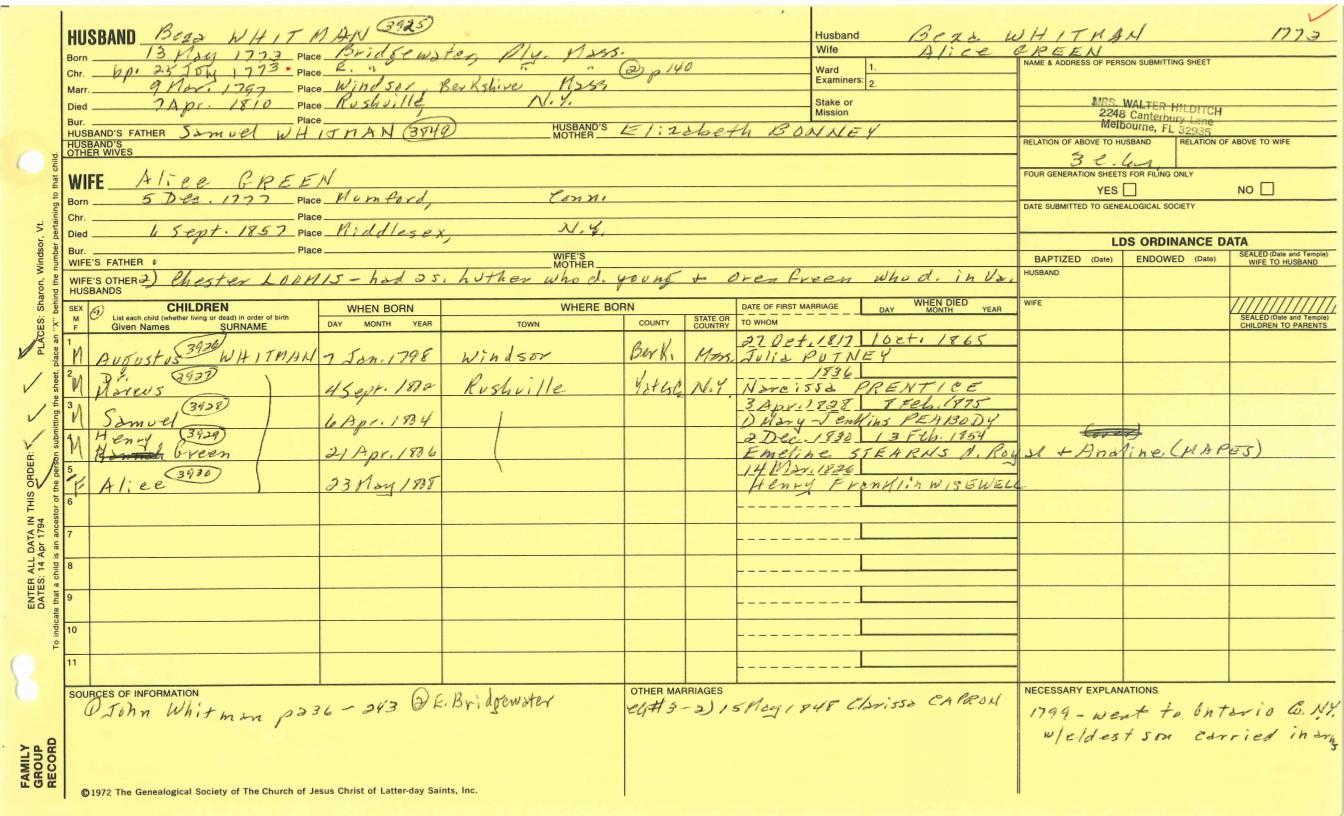 HUSBAND Beza WHITMAN 3925
Born 13 May 1773 Place Bridgewater, Ply. Mass.
Chr. bp. 25 July 1773 Place E. " " " ② p 140
Marr. 9 Mar. 1797 Place Windsor, Berkshire Mass
Died 7 Apr. 1810 Place Rushville, N.Y.
Bur. Place
HUSBAND'S FATHER Samuel WHITMAN 3849 HUSBAND'S MOTHER Elizabeth BONNEY
HUSBAND'S OTHER WIVES
Husband Beza WHITMAN 1773
Wife Alice GREEN
Ward Examiners: 1.
2.
Stake or Mission
NAME & ADDRESS OF PERSON SUBMITTING SHEET
MRS. WALTER HILDITCH
2248 Canterbury Lane
Melbourne, FL 32935
RELATION OF ABOVE TO HUSBAND RELATION OF ABOVE TO WIFE
FOUR GENERATION SHEETS FOR FILING ONLY
YES NO
DATE SUBMITTED TO GENEALOGICAL SOCIETY
WIFE Alice GREEN
Born 5 Dec. 1777 Place Mumford, Conn.
Chr. Place
Died 6 Sept. 1857 Place Middlesex, N.Y.
Bur. Place
WIFE'S FATHER WIFE'S MOTHER
WIFE'S OTHER HUSBANDS 2) Chester LOOMIS - had 2s. Luther who d. young + Oren Green who d. in Va.
LDS ORDINANCE DATA
BAPTIZED (Date) ENDOWED (Date) SEALED (Date and Temple) WIFE TO HUSBAND
HUSBAND
WIFE
SEALED (Date and Temple) CHILDREN TO PARENTS
SEX M F CHILDREN WHEN BORN WHERE BORN DATE OF FIRST MARRIAGE WHEN DIED
List each child (whether living or dead) in order of birth
Given Names SURNAME DAY MONTH YEAR TOWN COUNTY STATE OR COUNTRY TO WHOM DAY MONTH YEAR
1 M Augustus 3926 WHITMAN 7 Jan. 1798 Windsor Berk. Mass. 27 Oct. 1817 1 Oct. 1865
Julia PUTNEY
2 M Dr. Marcus 3927 4 Sept. 1802 Rushville N.Y. 1836
Narcissa PRENTICE
3 M Samuel 3928 6 Apr. 1804 3 Apr. 1828 7 Feb. 1875
Mary Jenkins PEABODY
4 M Henry Green 3929 21 Apr. 1806 2 Dec. 1830 13 Feb. 1854
Emeline STEARNS d. Royal + Andline (MAPES)
5 F Alice 3930 23 May 1808 14 Mar. 1826
Henry Franklin WISEWELL
6
7
8
9
10
11
SOURCES OF INFORMATION
① John Whitman p236 - 243 ② E. Bridgewater
OTHER MARRIAGES
#3 - 2) 15 May 1848 Clarissa CAPRON
NECESSARY EXPLANATIONS
1799 - went to Ontario Co. N.Y.
w/eldest son carried in arms
©1972 The Genealogical Society of The Church of Jesus Christ of Latter-day Saints, Inc.
FAMILY GROUP RECORD
ENTER ALL DATA IN THIS ORDER: PLACES: Sharon, Windsor, Vt.
DATES: 14 Apr 1794
To indicate that a child is an ancestor of the person submitting the sheet, place an "X" behind the number pertaining to that child.